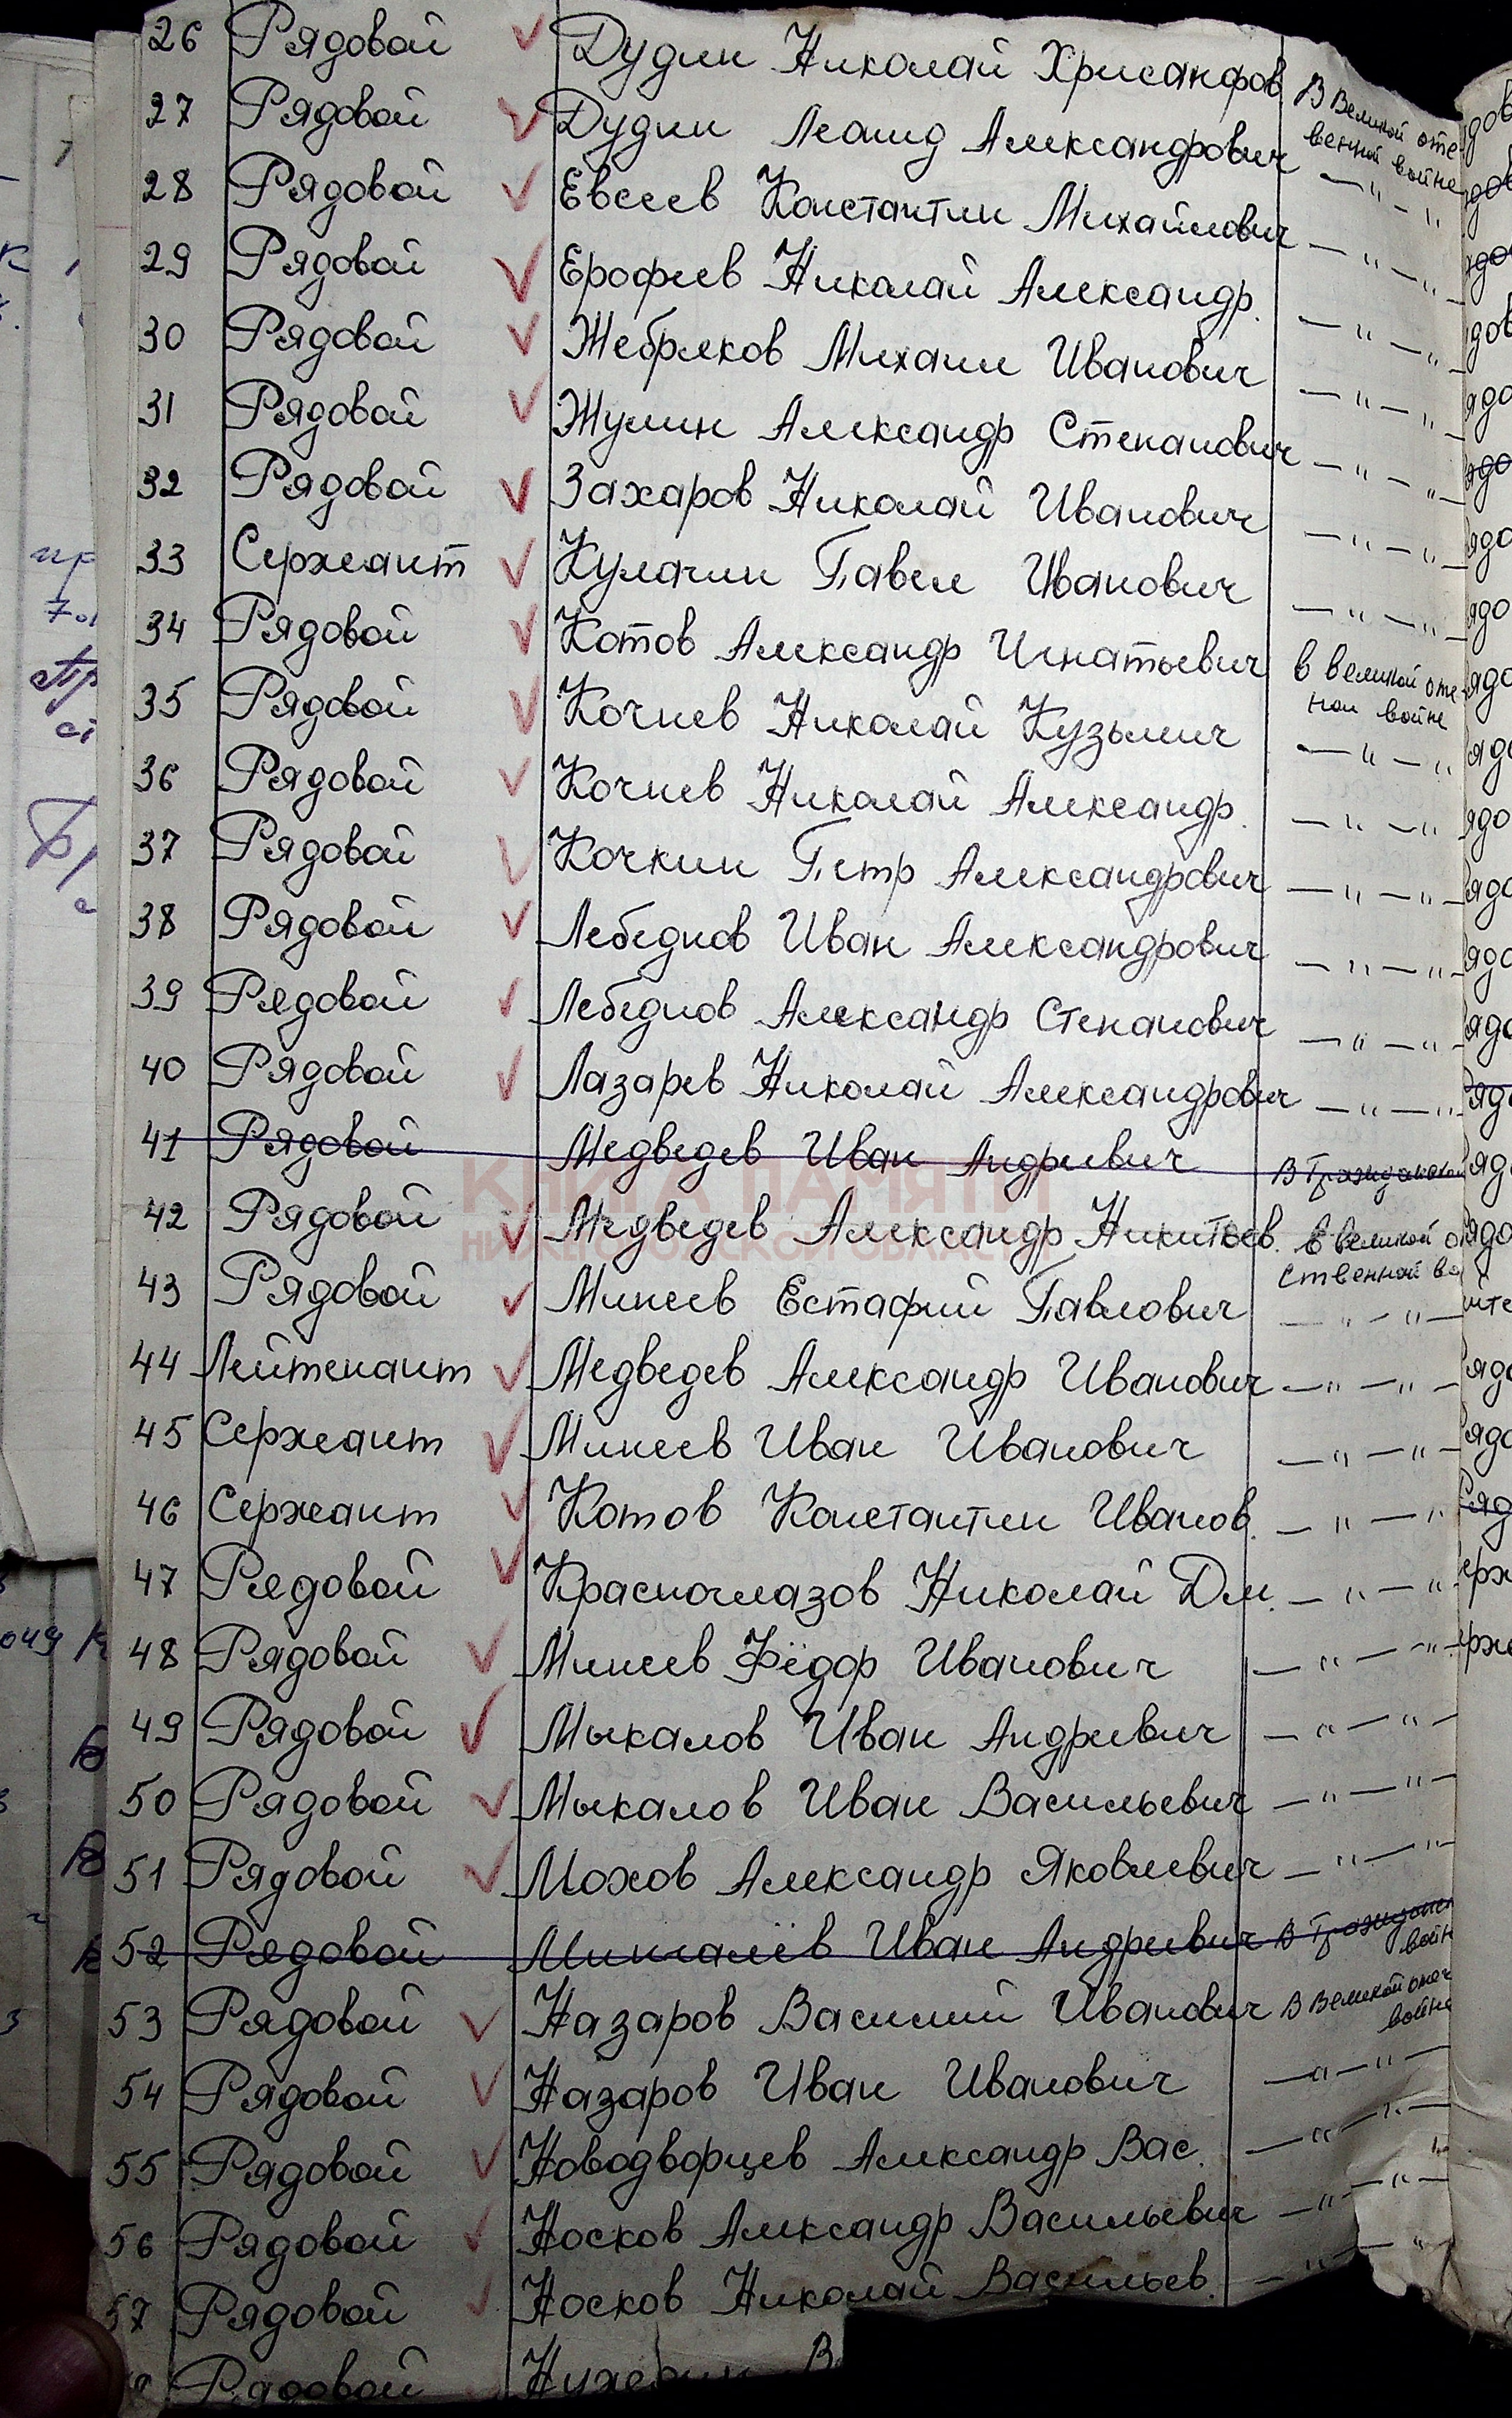 26 Рядовой Дудин Николай Хрисанфов В Великой оте
венной войне
27 Рядовой Дудин Леонид Александрович —"—"
28 Рядовой Евсеев Константин Михайлович —"—"—
29 Рядовой Ерофеев Николай Александр. —"—"—
30 Рядовой Жебряков Михаил Иванович —"—"—
31 Рядовой Жулин Александр Степанович —"—"—
32 Рядовой Захаров Николай Иванович —"—"—
33 Сержант Кулагин Павел Иванович —"—"—
34 Рядовой Котов Александр Игнатьевич в великой оте
ной войне
35 Рядовой Кочнев Николай Кузьмич —"—"
36 Рядовой Кочнев Николай Александр. —"—"
37 Рядовой Кочкин Петр Александрович —"—"—
38 Рядовой Лебеднов Иван Александрович —"—"—
39 Рядовой Лебеднов Александр Степанович —"—"—
40 Рядовой Лазарев Николай Александрович —"—"—
41 Рядовой Медведев Иван Андреевич В Гражданской
КНИГА ПАМЯТИ
НИЖЕГОРОДСКОЙ ОБЛАСТИ
42 Рядовой Медведев Александр Никитьев. в великой о
ственной во
43 Рядовой Минеев Естафий Павлович —"—"—
44 Лейтенант Медведев Александр Иванович —"—"—
45 Сержеант Минеев Иван Иванович —"—"—
46 Сержеант Котов Константин Иванов. —"—"
47 Рядовой Красноглазов Николай Дм. —"—"
48 Рядовой Минеев Фёдор Иванович —"—"—
49 Рядовой Мыкалов Иван Андреевич —"—"—
50 Рядовой Мыкалов Иван Васильевич —"—"—
51 Рядовой Мохов Александр Яковлевич —"—"—
52 Рядовой Мингалёв Иван Андреевич В Гражданск
войн
53 Рядовой Назаров Василий Иванович В Великой отеч
войне
54 Рядовой Назаров Иван Иванович —"—"—
55 Рядовой Новодворцев Александр Вас. —"—"—
56 Рядовой Носков Александр Васильевич —"—"—
57 Рядовой Носков Николай Васильев. —"—"
Рядовой